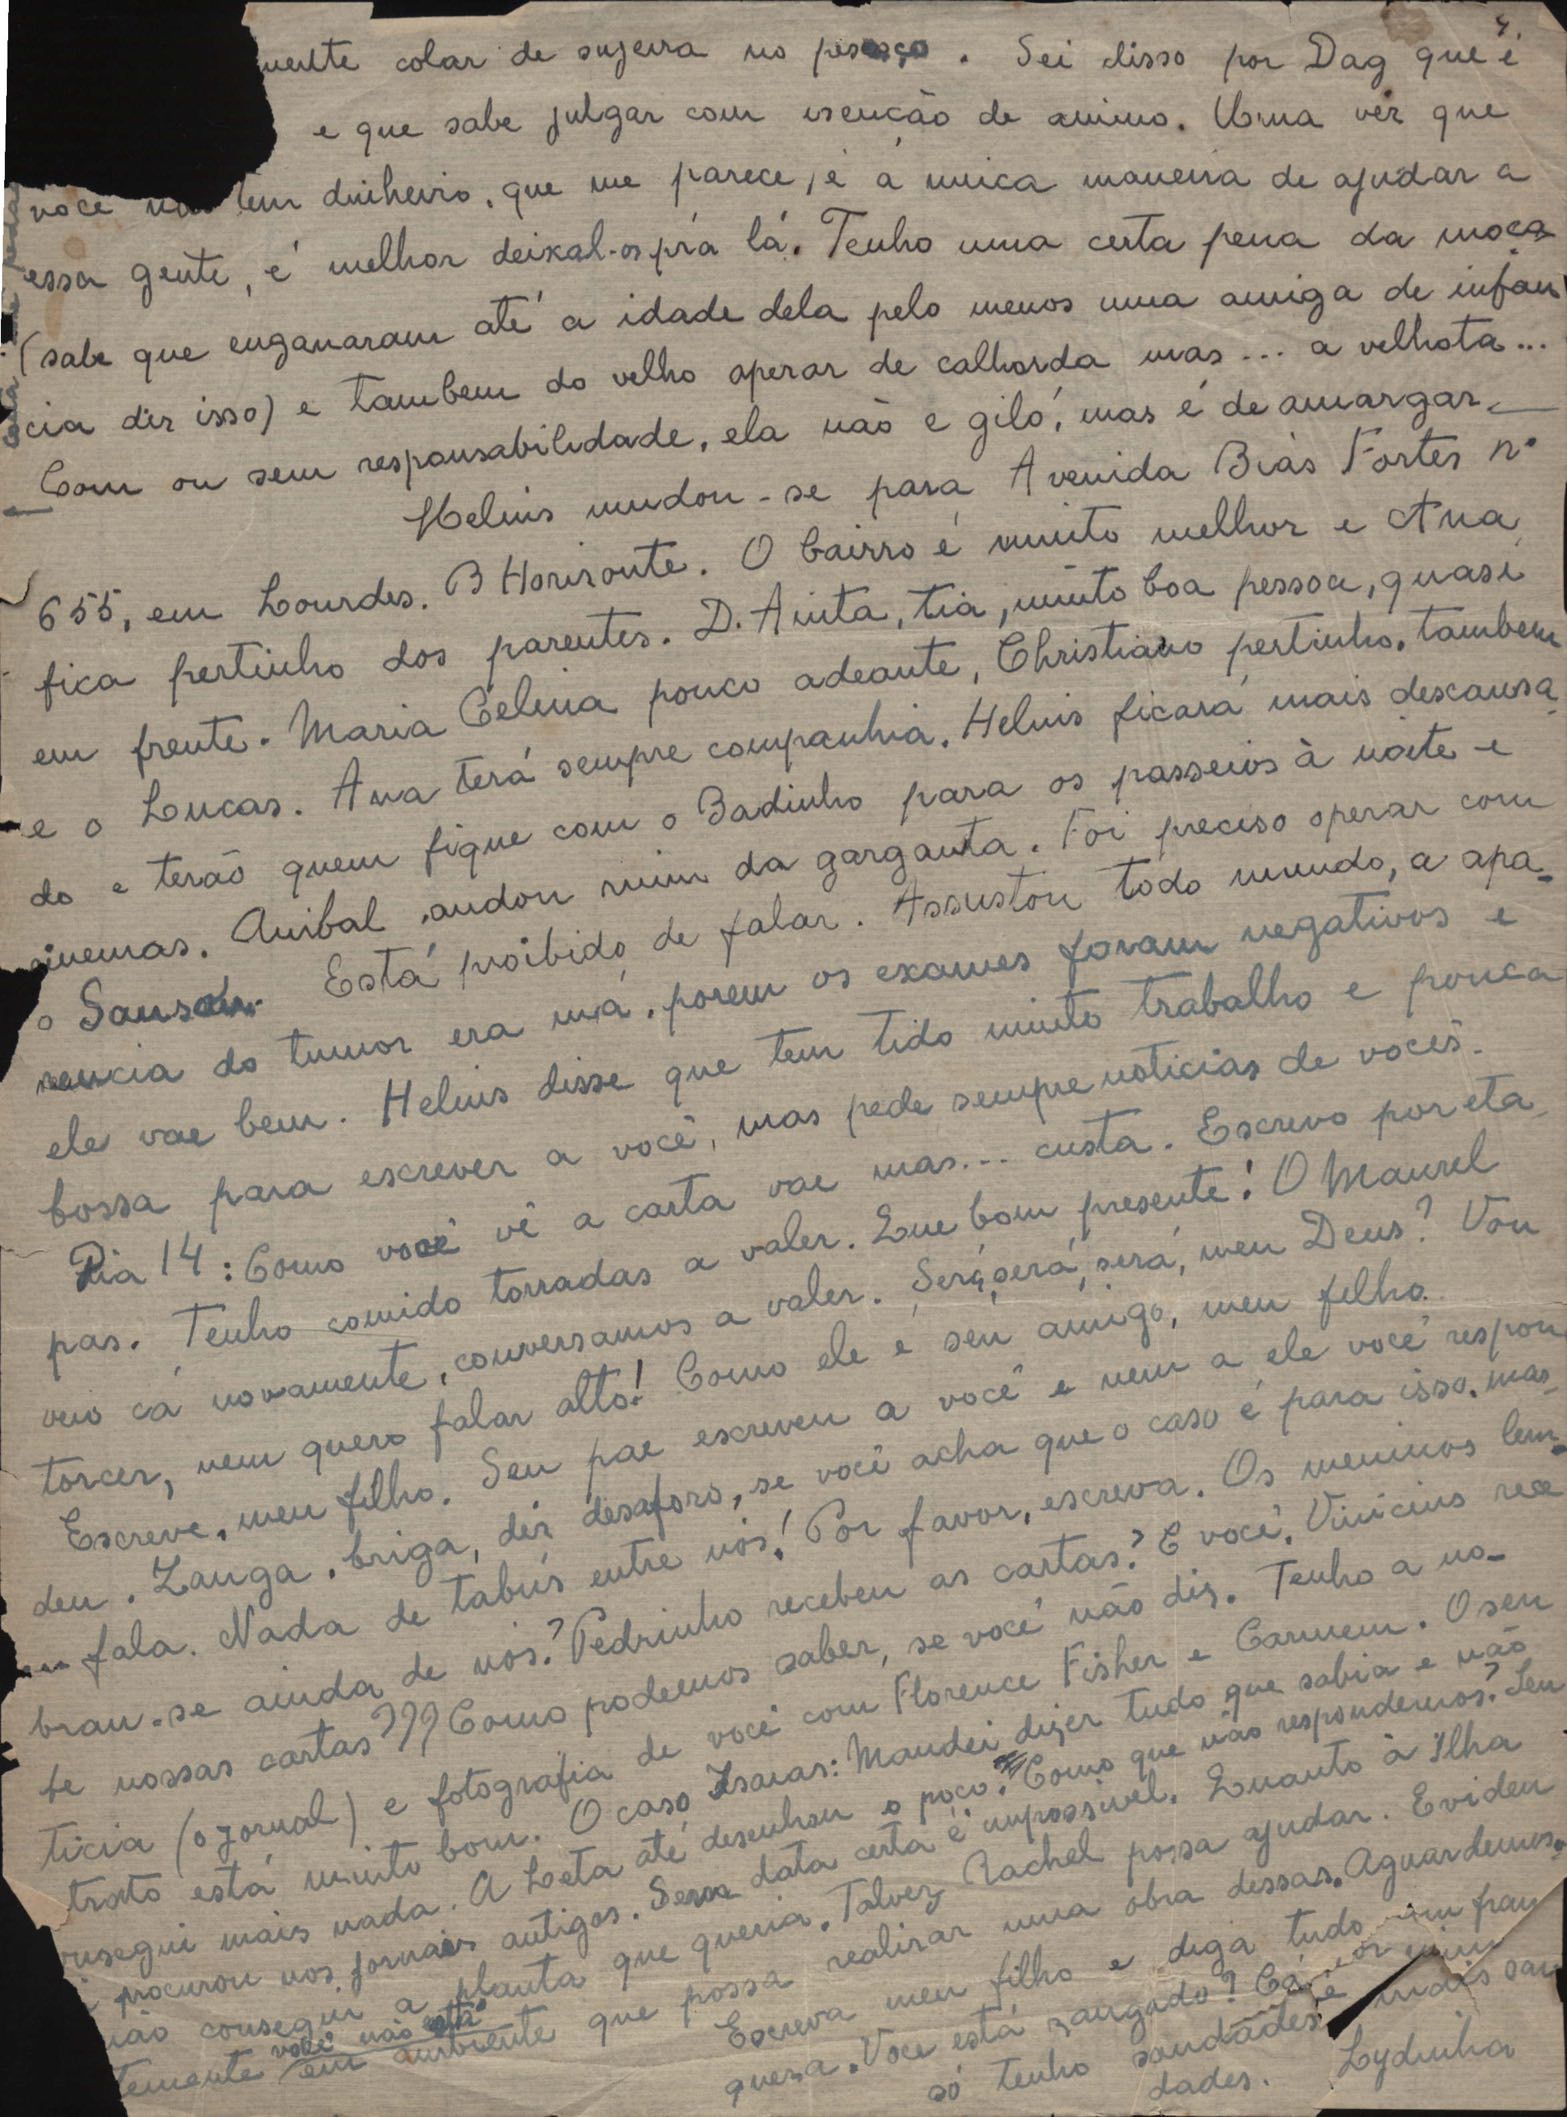 4
mente colar de sujeira no pescoço. Sei disso por Dag que é
e que sabe julgar com isenção de animo. Uma vez que
voce não tem dinheiro, que me parece, é a unica maneira de ajudar a
essa gente, é melhor deixal-os prá lá. Tenho uma certa pena da moça
(sabe que enganaram até a idade dela pelo menos uma amiga de infan
cia diz isso) e tambem do velho apezar de calhorda mas... a velhota...
Com ou sem responsabilidade, ela não é giló, mas é de amargar.
Helius mudou-se para Avenida Bias Fortes nº
655, em Lourdes. B Horizonte. O bairro é muito melhor e Ana
fica pertinho dos parentes. D. Anita, tia, muito boa pessoa, quasi
em frente. Maria Celina pouco adeante, Christiano pertinho, tambem
e o Lucas. Ana terá sempre companhia. Helius ficará mais descansa
do e terão quem fique com o Badinho para os passeios à noite e
cinemas. Anibal andou ruim da garganta. Foi preciso operar com
o Sanson. Está proibido de falar. Assustou todo mundo, a apa-
rencia do tumor era má, porem os exames foram negativos e
ele vae bem. Helius disse que tem tido muito trabalho e pouca
bossa para escrever a você, mas pede sempre noticias de vocês.
Dia 14: Como você vê a carta vae mas... custa. Escrevo por eta
pas. Tenho comido torradas a valer. Que bom presente! O Maurel
veio cá novamente, conversamos a valer. Será, será, será, meu Deus? Vou
torcer, nem quero falar alto! Como ele é seu amigo, meu filho.
Escreve, meu filho. Seu pae escreveu a você e nem a ele você respon
deu. Zanga, briga, diz desaforo, se você acha que o caso é para isso, mas
fala. Nada de tabús entre nós! Por favor, escreva. Os meninos lem-
bram-se ainda de nós? Pedrinho recebeu as cartas? E você, Vinicius rece
be nossas cartas??? Como podemos saber, se você não diz. Tenho a no-
ticia (o jornal) e fotografia de você com Florence Fisher e Carmem. O seu
trato está muito bom. O caso Isaias: Mandei dizer tudo que sabia e não
consegui mais nada. A Leta até desenhou o poço. Como que não respondemos? Seu
procurou nos jornais antigos. Sem data certa é impossivel. Quanto à Ilha
não consegui a planta que queria. Talvez Rachel possa ajudar. Eviden
temente você não está em ambiente que possa realizar uma obra dessas. Aguardemos.
Escreva meu filho e diga tudo fran
queza. Voce está zangado? Cá por mim
só tenho saudades e mais sau
dades. Lydinha